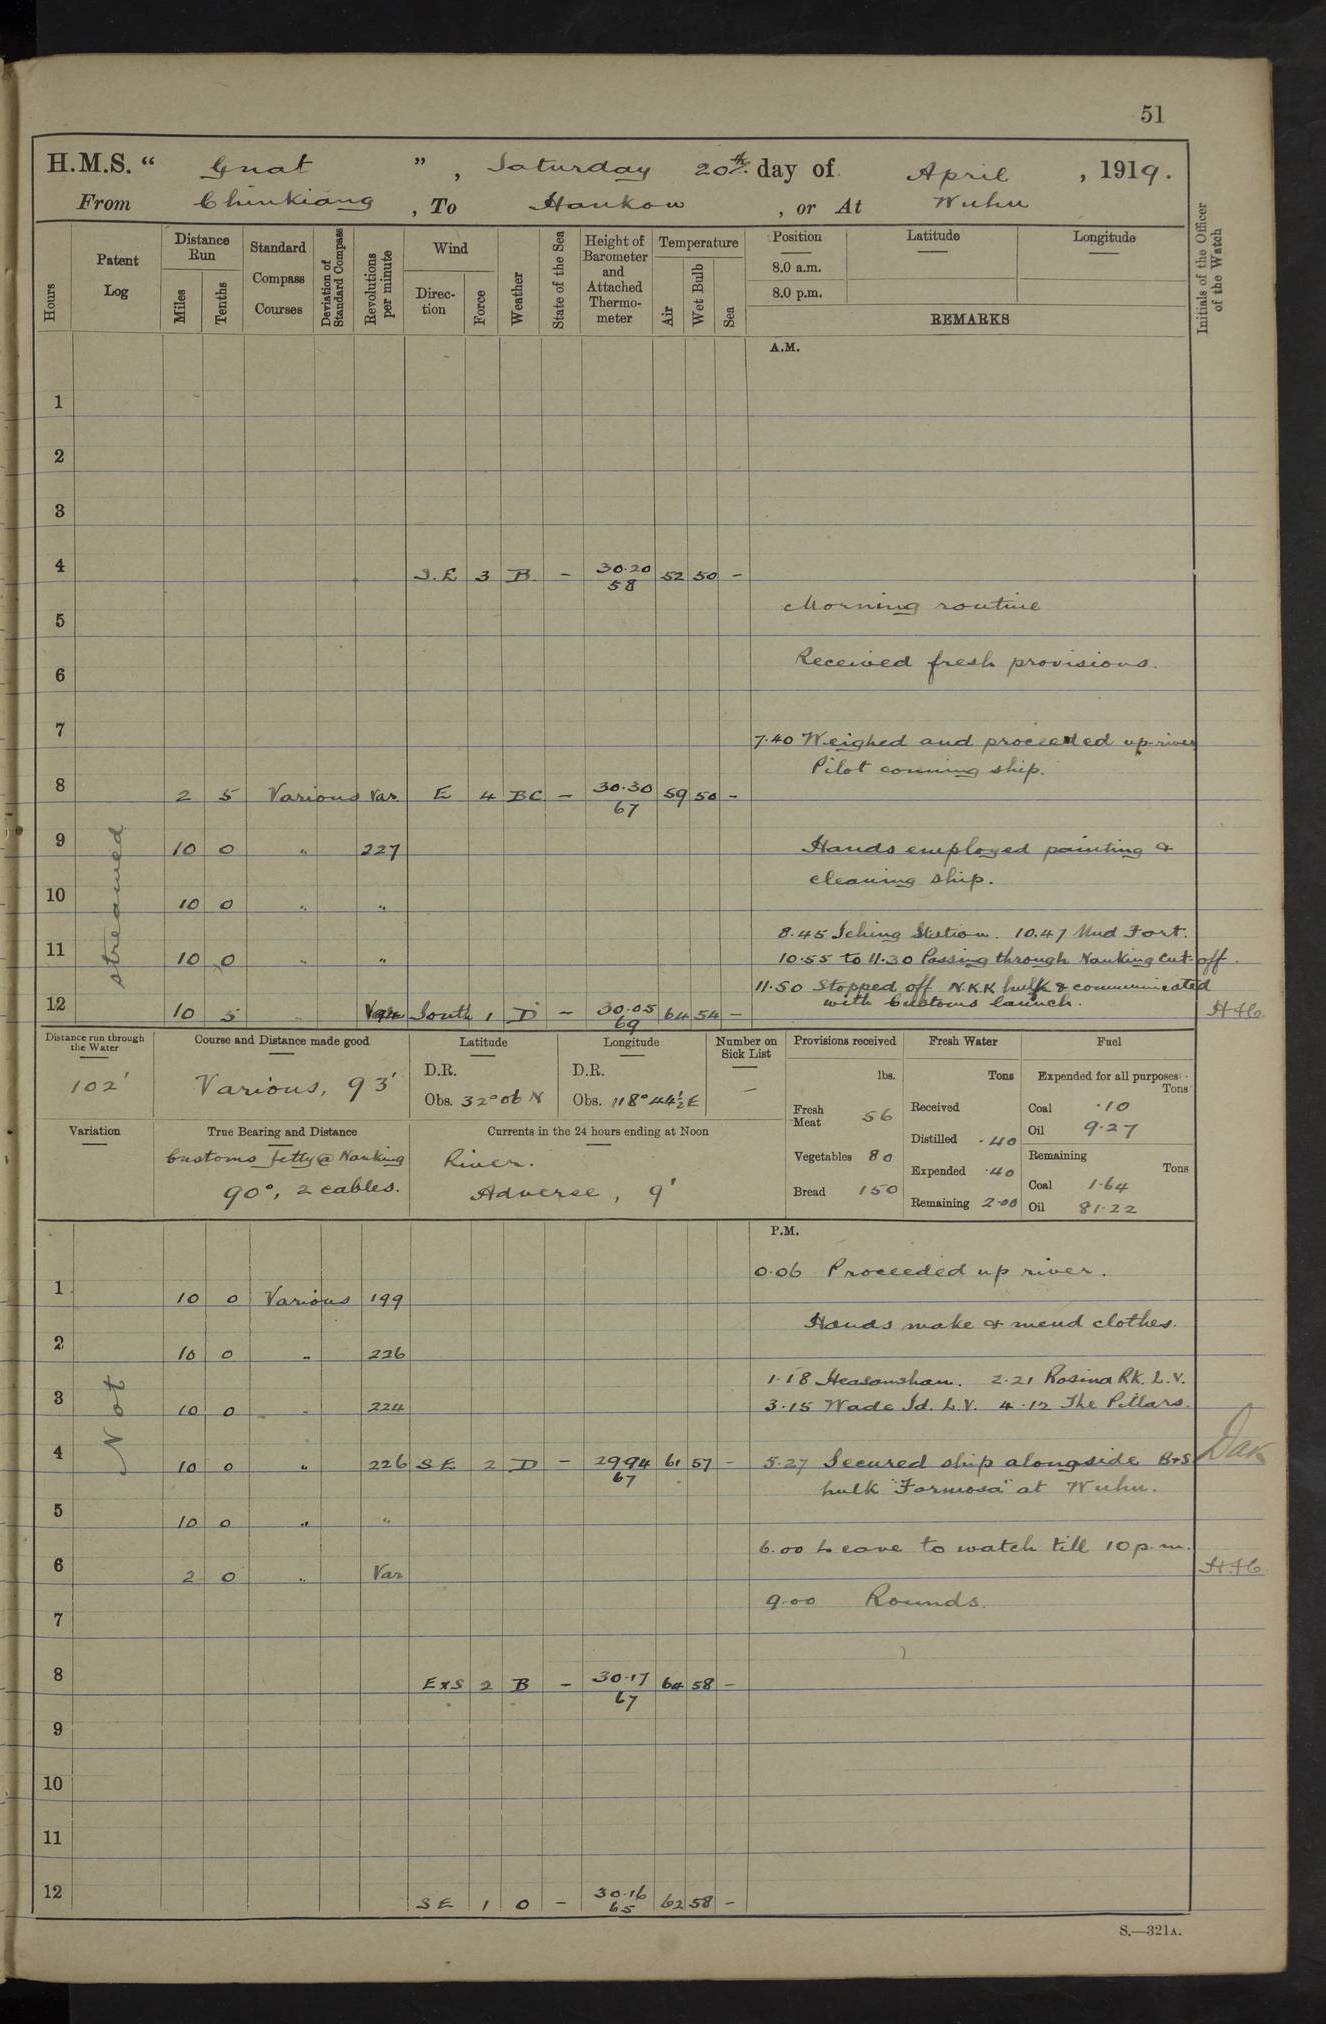 51
H.M.S. “ Gnat ”, Saturday 20th day of April , 1919.
From Chinkiang , To Hankow , or At Wuhu
Hours
Patent Log
Distance Run
Miles
Tenths
Standard Compass Courses
Deviation of Standard Compass
Revolutions per minute
Wind
Direc- tion
Force
Weather
State of the Sea
Height of Barometer and Attached Thermo- meter
Temperature
Air
Wet Bulb
Sea
Position
Latitude
Longitude
8.0 a.m.
8.0 p.m.
REMARKS
Initials of the Officer of the Watch
A.M.
1
2
3
4 S.E 3 B - 30.20 58 52 50 -
Morning routine
5
Received fresh provisions.
6
7
7.40 Weighed and proceeded up river
Pilot conning ship.
8 2 5 Various Var. E 4 BC - 30.30 67 59 50 -
9 10 0 " 227
Hands employed painting &
cleaning ship.
10 10 0 " "
8.45 Iching Station. 10.47 Mud Fort.
11 10 0 " "
10.55 to 11.30 Passing through Nanking Cut-off.
11.50 Stopped off N.K.K hulk & communicated
with Customs launch.
12 10 5 South 1 D - 30.05 69 64 54 -
Not streamed
Distance run through the Water
102'
Course and Distance made good
Various, 93'
Latitude
D.R.
Obs. 32° 06 N
Longitude
D.R.
Obs. 118° 44½ E
Number on Sick List
-
Provisions received
lbs.
Fresh Meat 56
Vegetables 80
Bread 150
Fresh Water
Tons
Received
Distilled .40
Expended .40
Remaining 2.00
Fuel
Expended for all purposes:-
Tons
Coal .10
Oil 9.27
Remaining
Tons
Coal 1.64
Oil 81.22
Variation
True Bearing and Distance
Customs Jetty @ Nanking
90°, 2 cables.
Currents in the 24 hours ending at Noon
River.
Adverse, 9'
P.M.
0.06 Proceeded up river.
1 10 0 Various 199
Hands make & mend clothes.
2 10 0 " 226
1.18 Heasonshan. 2.21 Rosina Rk. L.V.
3 10 0 " 224
3.15 Wade Id. L.V. 4.12 The Pillars.
4 10 0 " 226 SE 2 D - 29.94 67 61 57 -
5.27 Secured ship alongside B&S
hulk "Formosa" at Wuhu.
5 10 0 " "
6.00 Leave to watch till 10 p.m.
6 2 0 " Var
9.00 Rounds.
7
8 ExS 2 B - 30.17 67 64 58 -
9
10
11
12 SE 1 0 - 30.16 65 62 58 -
S.—321A.